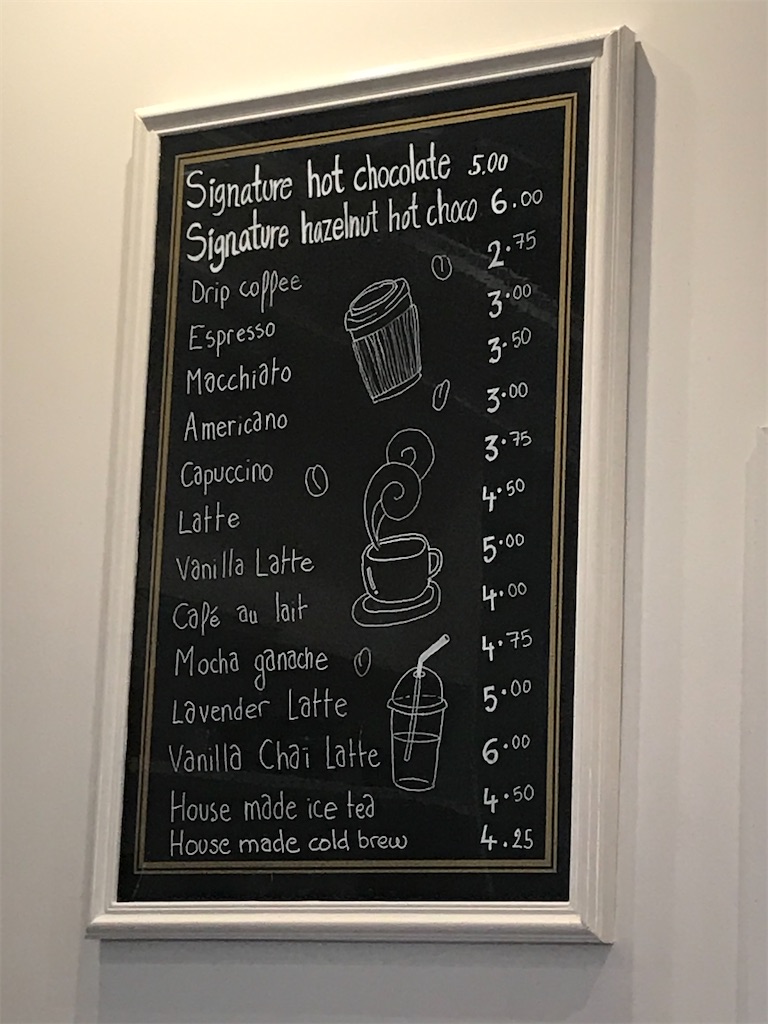 Signature hot chocolate 5.00
Signature hazelnut hot choco 6.00
Drip coffee 2.75
Espresso 3.00
Macchiato 3.50
Americano 3.00
Capuccino 3.75
Latte 4.50
Vanilla Latte 5.00
Café au lait 4.00
Mocha ganache 4.75
Lavender Latte 5.00
Vanilla Chaï Latte 6.00
House made ice tea 4.50
House made cold brew 4.25